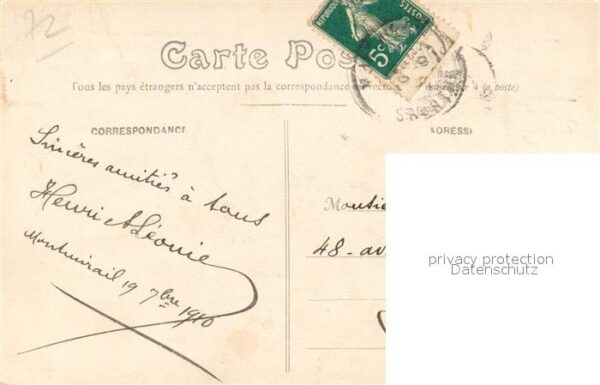 72
Carte Pos
5c
POSTES
Tous les pays étrangers n'acceptent pas la correspondance au recto
à la poste).
CORRESPONDANCE
ADRESSE
Sincères amitiés à tous
Henri et Léonie
Montmirail 19 7bre 1910
Monsie
48 - av
privacy protection
Datenschutz